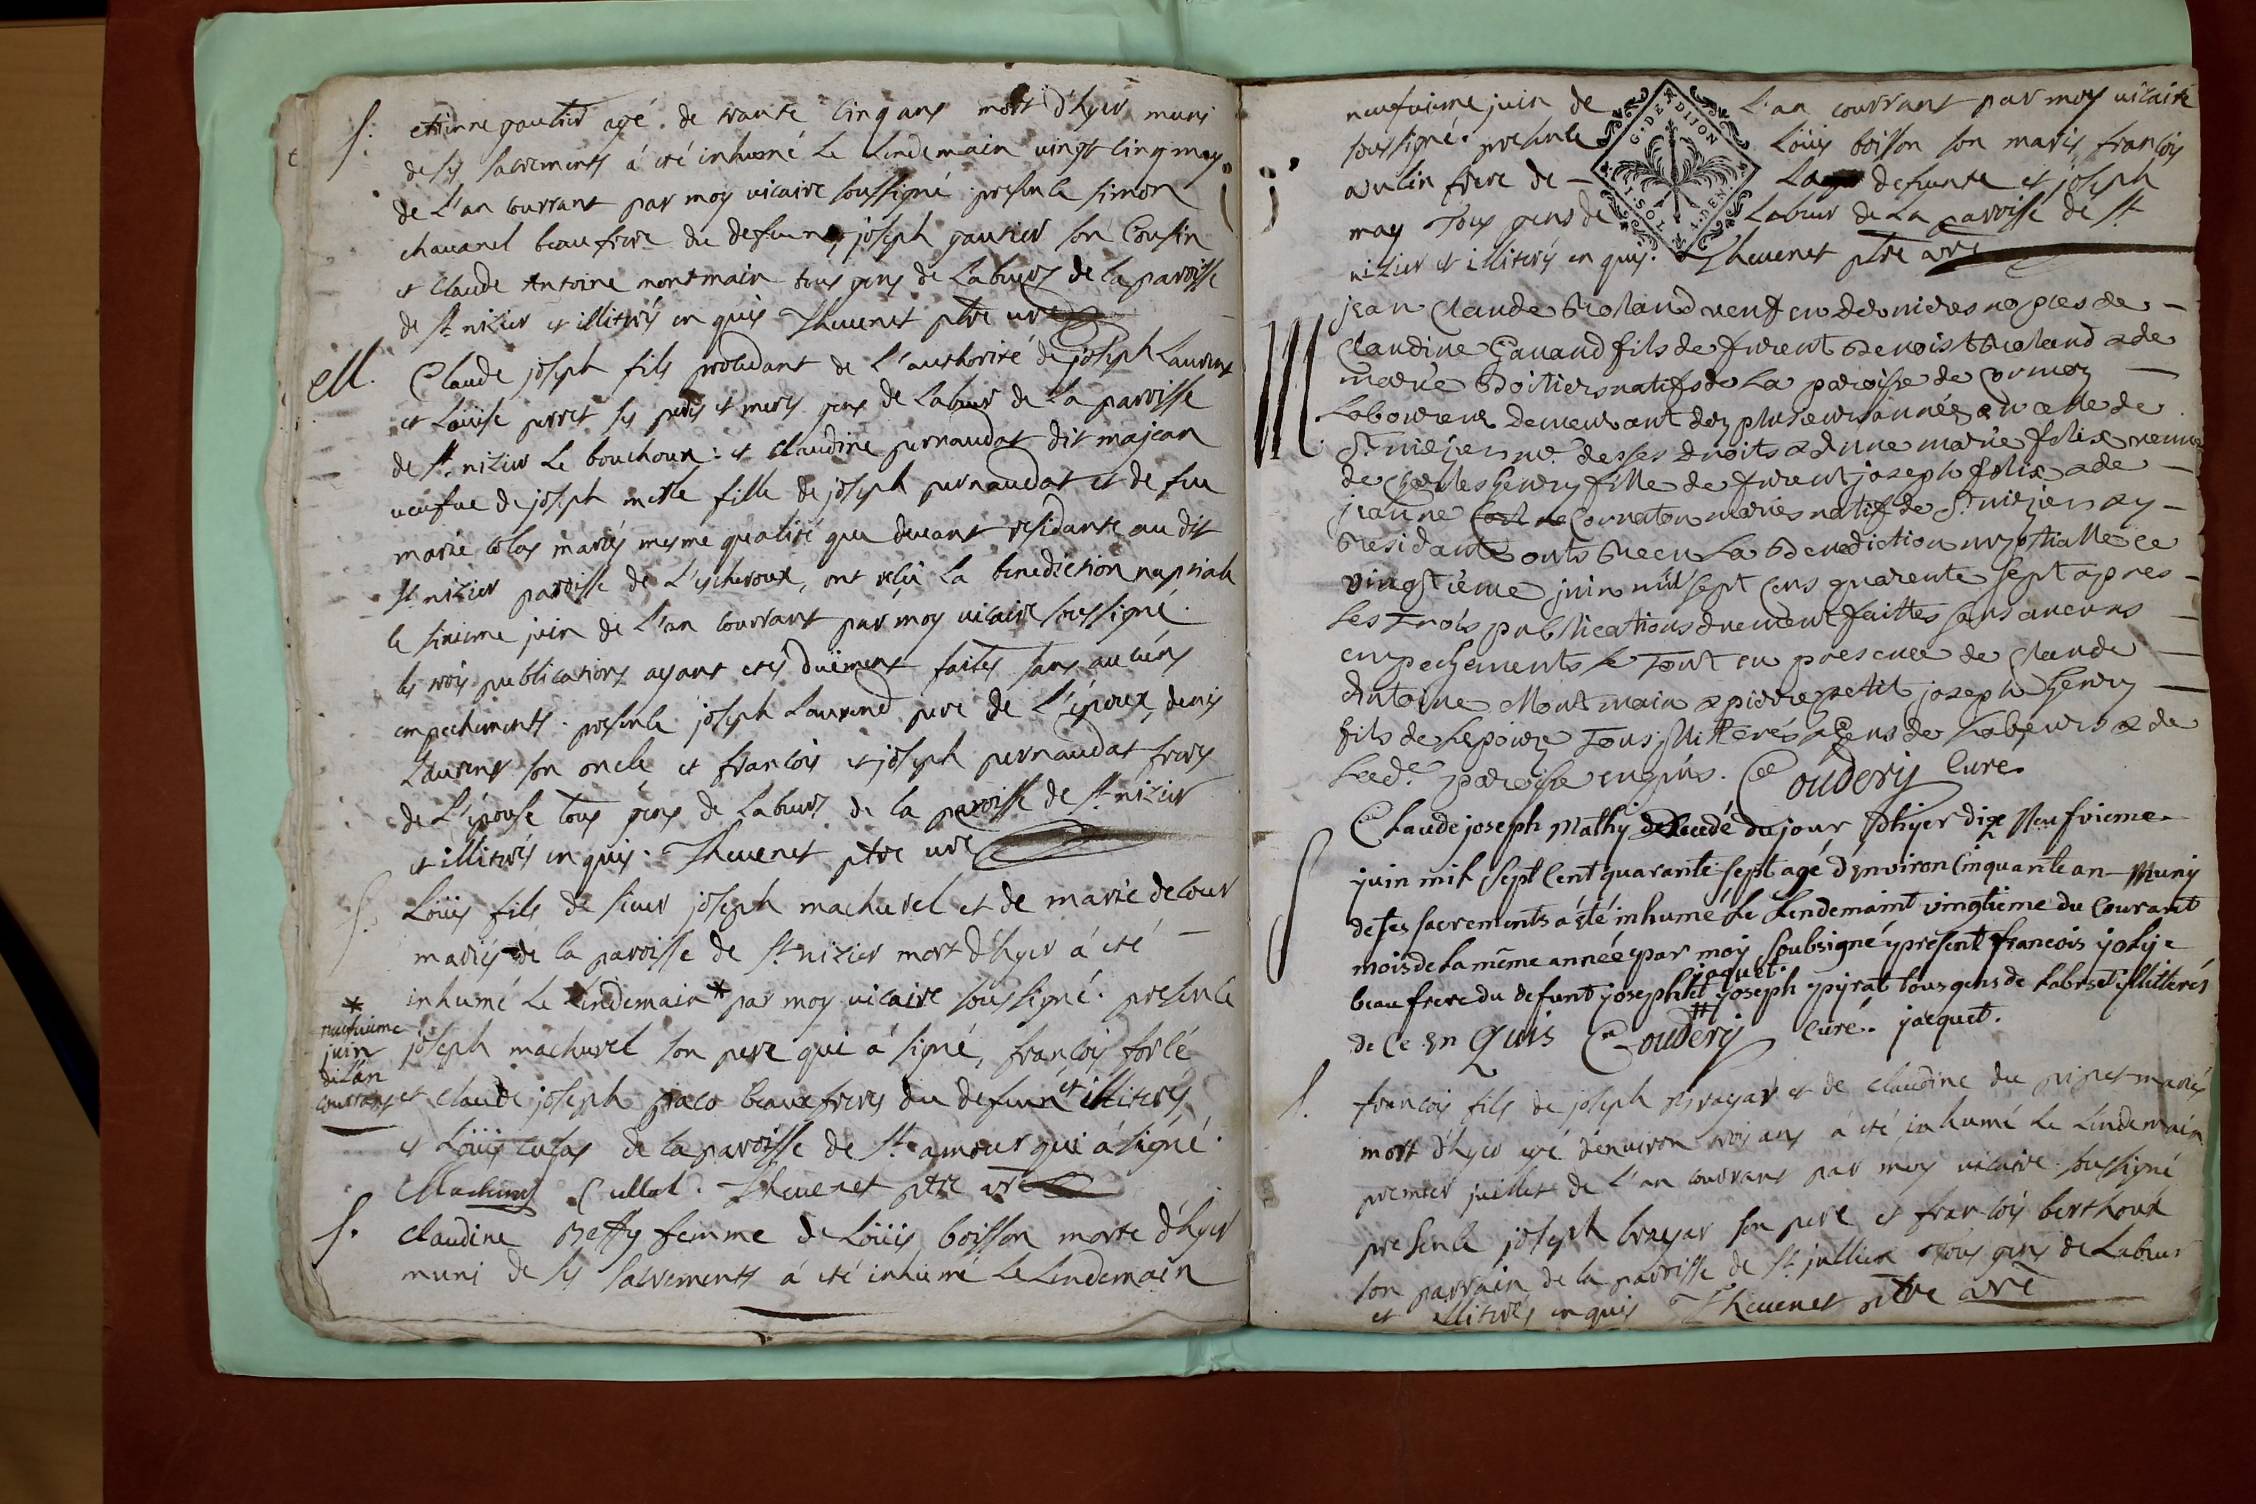 S. etienne gautier agé de trante cinq ans mort d'hyer muni
de ses sacrements á eté inhumé le lendemain vingt cinq may
de l'an courrant par moy vicaire soussigné presence simon
chavanel beaufrere du defunt joseph gautier son cousin
et claude Antoine montmain tous gens de labeurs de la paroisse
de St nizier et illiterés enquis Thevenet ptre vre
M. Claude joseph fils procedant de l'authorité de joseph Laurent
et Loüise perret ses peres et meres gens de labeur de la paroisse
de St nizier le bouchoux: et claudine pernaudat dit majean
veufve de joseph merle fille de joseph pernaudat et de feu
marie colas mariés mesme qualité que devant residante au dit
St nizier paroisse de L'escheroux, ont reçü la benediction nuptiale
le sixieme juin de l'an courrant par moy vicaire soussigné.
les trois publications ayant etés düement faites sans aucuns
empechements. presence joseph Laurend pere de l'époux, denis
Laurent son oncle et françois et joseph pernaudat freres
de l'épouse tous gens de labeurs de la paroisse de St nizier
et illiterés enquis. Thevenet ptre vre
S. Loüis fils de sieur joseph machurel et de marie delour
mariés de la paroisse de St nizier mort d'hyer á eté
inhumé le lendemain * par moy vicaire soussigné. presence
* neufvieme
juin
de l'an
courrant
joseph machurel son pere qui á signé, françois forlé
et claude joseph jaco beauxfreres du defunt et illiterés
et Loüis culas de la paroisse de St amour qui á signé.
Machurel Cullat. Thevenet ptre vre
S. claudine Beffy femme de Loüis boisson morte d'hyer
muni de ses sacrements á eté inhumé le lendemain
neufvieme juin de l'an courrant par moy vicaire
soussigné. presence Loüis boisson son maris françois
frere de la defunte et joseph
may tous gens de labeur de la paroisse de St
nizier et illiterés enquis. Thevenet ptre vre
G. DE DIJON
1. SOL. 4. DEN.
M. jean Claude Broland veuf en dernieres nopces de
Claudine Gavand fils de furent Benoist Broland & de
marie Poitiers natifs de la paroisse de Cormoz
laboureur demeurant dez plusieurs années en celle de
St nizier me. de ses droits & d'une marie felix veuve
de Charles henry fille de furent joseph felix & de
jeanne Cornaton mariés natif de St nizier &y
Residante onts Receu la Benediction nuptialle ce
vingtieme juin mil sept cens quarente sept apres
les Trois publications dument faittes sans aucuns
empechements le Tout en presence de Claude
Antoine Montmain & pierre petit joseph henry
fils de l'epouze Tous illitterés & Gens de labeurs & de
Lad.e paroisse enquis. Couderij Curé
S Claude joseph Mathy decedé du jour d'hyer dix Neufvieme
juin mil sept cent quarante sept agé d'Environ Cinquante an Muny
de ses sacrements á été inhumé le Lendemaint vingtieme du Courant
mois de la même année par moy soubsigné present francois joly
beaufrere du defunt joseph jaquet. et joseph pyrat tous gens de labr et illitterés
de Ce En Quis Couderij Curé. jacquet.
S. françois fils de joseph Brayar et de claudine du pipet mariés
mort d'hyer agé d'environ trois ans á eté inhumé le lendemain
premier juillet de l'an courrant par moy vicaire soussigné
presence joseph brayar son pere et françois berthoud
son parrain de la paroisse de St jullien Tous gens de labeur
et illiterés enquis Thevenet ptre vre